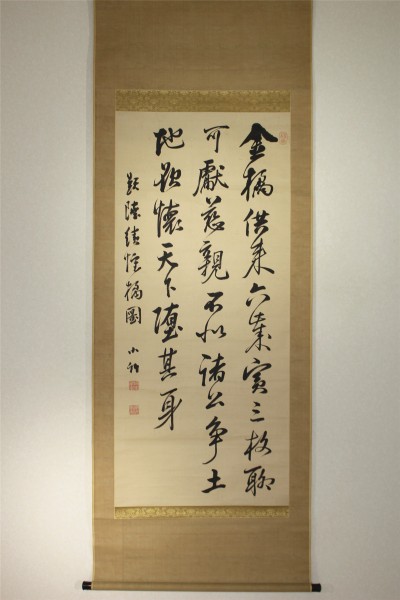 金橘供来六歳賓三枚聊
可獻慈親不似諸公争土
地欲懐天下墮其身
題陸績懐橘圖 小